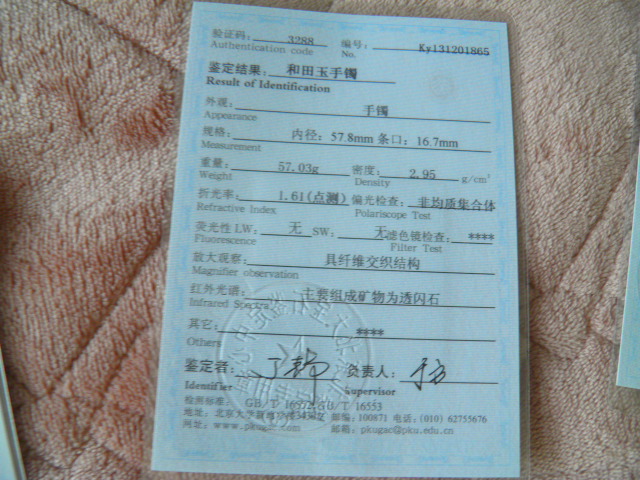 验证码: 3288 编号: Ky131201865
Authentication code No.
鉴定结果: 和田玉手镯
Result of Identification
外观: 手镯
Appearance
规格: 内径: 57.8mm 条口: 16.7mm
Measurement
重量: 57.03g 密度: 2.95 g/cm³
Weight Density
折光率: 1.61(点测) 偏光检查: 非均质集合体
Refractive Index Polariscope Test
荧光性 LW: 无 SW: 无 滤色镜检查: ****
Fluorescence Filter Test
放大观察: 具纤维交织结构
Magnifier observation
红外光谱: 主要组成矿物为透闪石
Infrared Spectra
其它: ****
Others
鉴定者: 负责人:
Identifier Supervisor
检测标准: GB/T 16552, GB/T 16553
地址: 北京大学 邮编: 100871 电话: (010) 62755676
网址: www.pkugac.com 邮箱: pkugac@pku.edu.cn